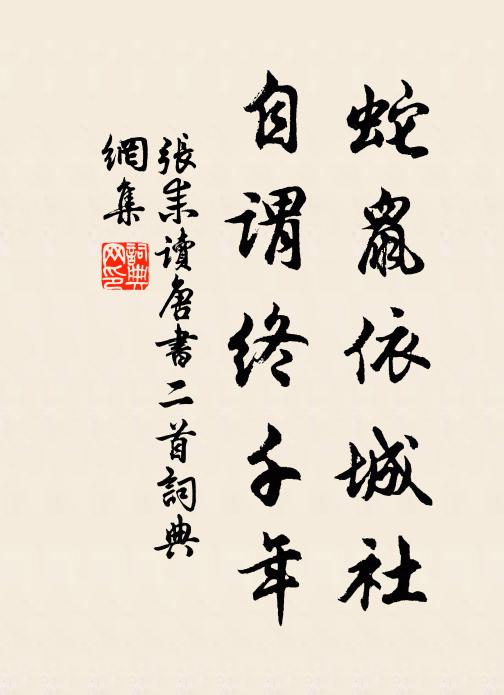 蛇鼠依城社
自謂終千年
張耒讀唐書二首詞典
網集
詞典網印